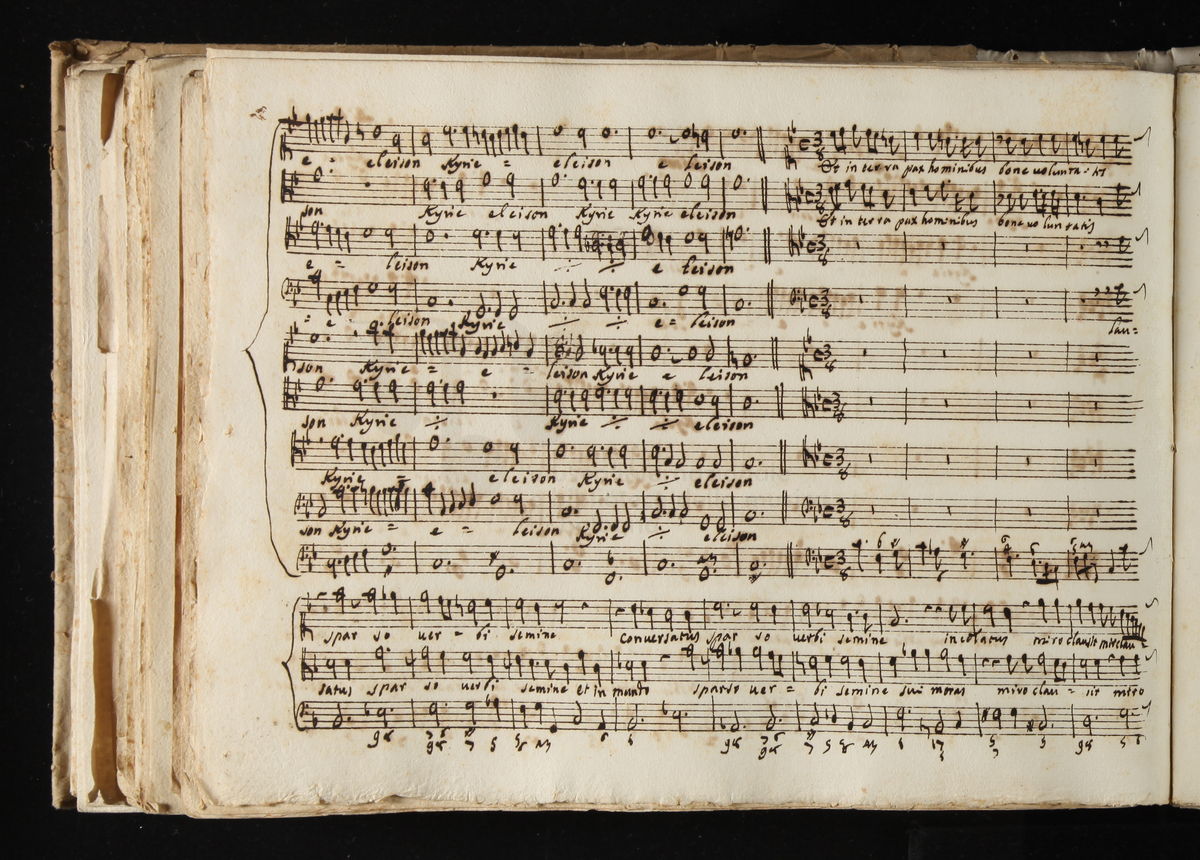 e = eleison Kyrie = eleison e leison Et in terra pax hominibus bone uolunta
son Kyrie eleison Kyrie Kyrie eleison Et in terra pax hominibus bone uoluntatis
e = leison Kyrie e leison
= e leison Kyrie e = leison lau=
son Kyrie = e = leison Kyrie e leison
son Kyrie Kyrie eleison
Kyrie = eleison Kyrie eleison
son Kyrie = e = leison Kyrie eleison
spar so uer = bi semine conuersatus spar so uerbi semine incolatus miro clausit miro clau
satus spar so uerbi semine et in mundo sparso uer = bi semine sui moras miro clau = sit miro